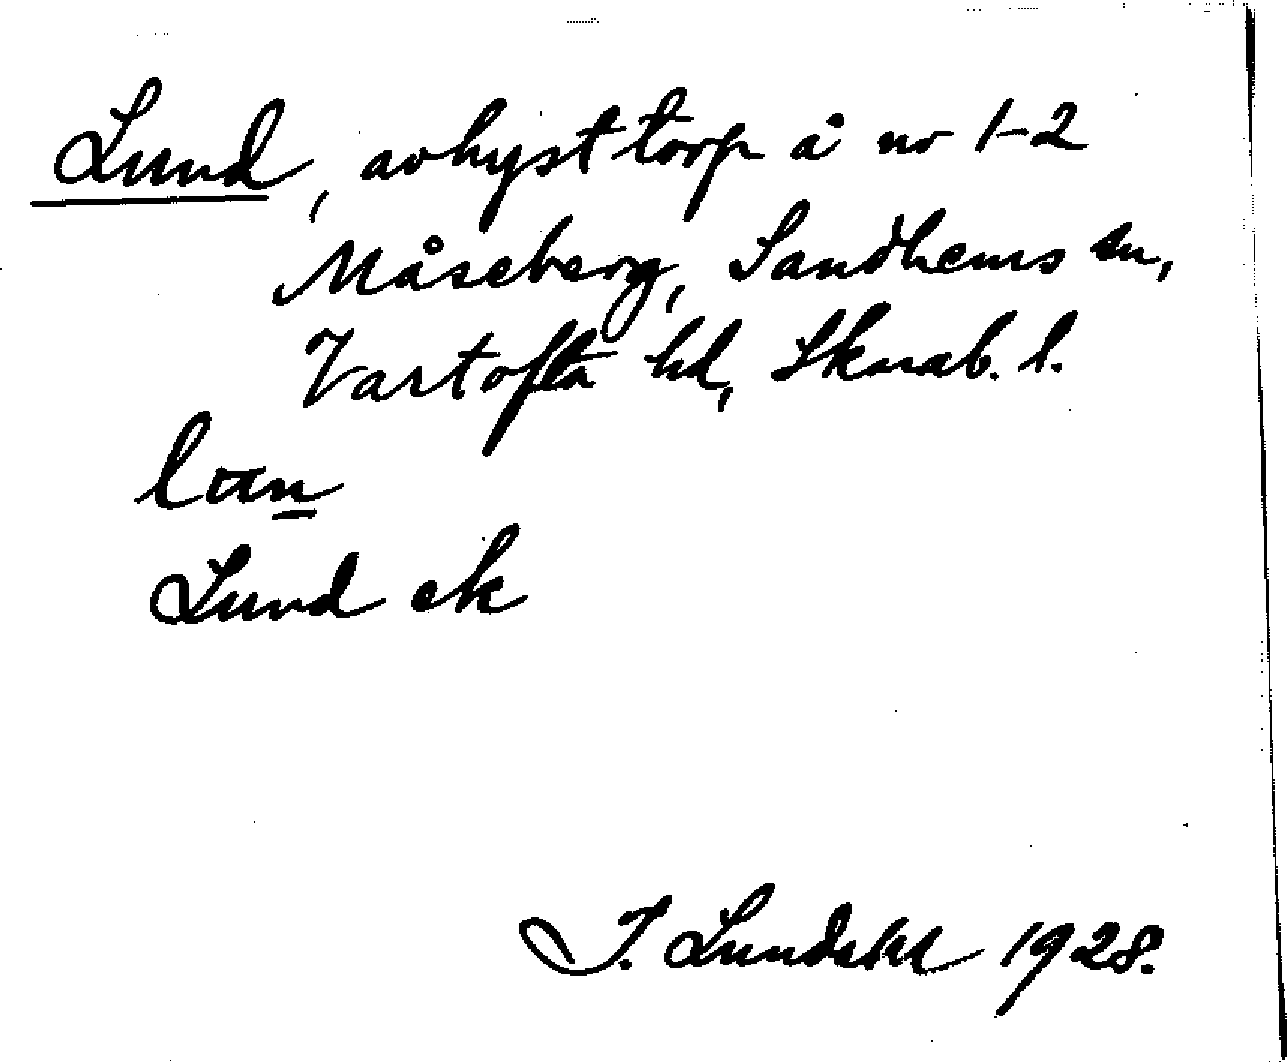 Lund, avhyst torp å nr 1-2
Måseberg, Sandhems sn,
Vartofta hd, Skarab. l.
Lund ek
J. Lundahl 1928.